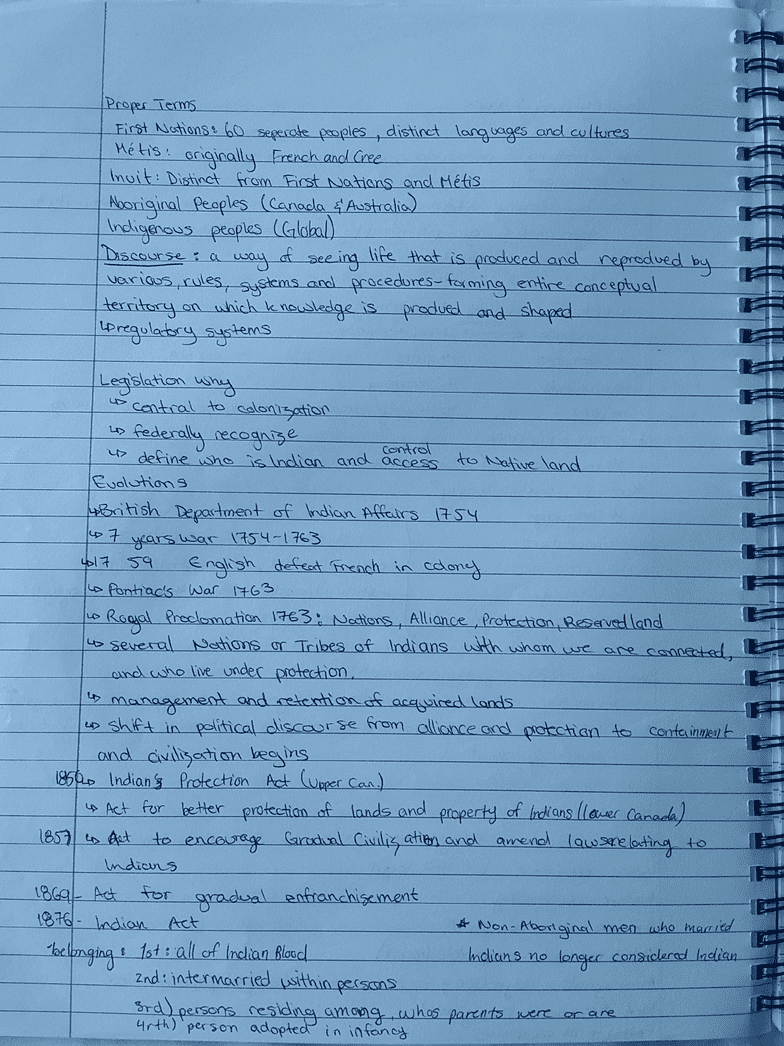 Proper Terms
First Nations: 60 seperate peoples, distinct languages and cultures
Métis: originally French and Cree
Inuit: Distinct from First Nations and Métis
Aboriginal Peoples (Canada & Australia)
Indigenous peoples (Global)
Discourse: a way of seeing life that is produced and reprodued by
various, rules, systems and procedures - forming entire conceptual
territory on which knowledge is produed and shaped
↳ regulatory systems
Legislation why
↳ central to colonization
↳ federally recognize
control
↳ define who is Indian and access to Native land
Evolutions
↳ British Department of Indian Affairs 1754
↳ 7 years War 1754-1763
↳ 17 59 English defeat French in colony
↳ Pontiac's War 1763
↳ Royal Proclamation 1763: Nations, Alliance, Protection, Reserved land
↳ several Nations or Tribes of Indians with whom we are connected,
and who live under protection.
↳ management and retention of acquired lands
↳ shift in political discourse from alliance and protction to containment
and civilization begins
1850 ↳ Indian's Protection Act (Upper Can.)
↳ Act for better protection of lands and property of Indians (lower Canada)
1857 ↳ Act to encourage Gradual Civilization and amend laws relating to
Indians
1869 - Act for gradual enfranchisement
1876 - Indian Act
* Non-Aboriginal men who married
Indians no longer considered Indian
belonging: 1st: all of Indian Blood
2nd: intermarried within persons
3rd) persons residing among, whos parents were or are
4rth) person adopted in infancy